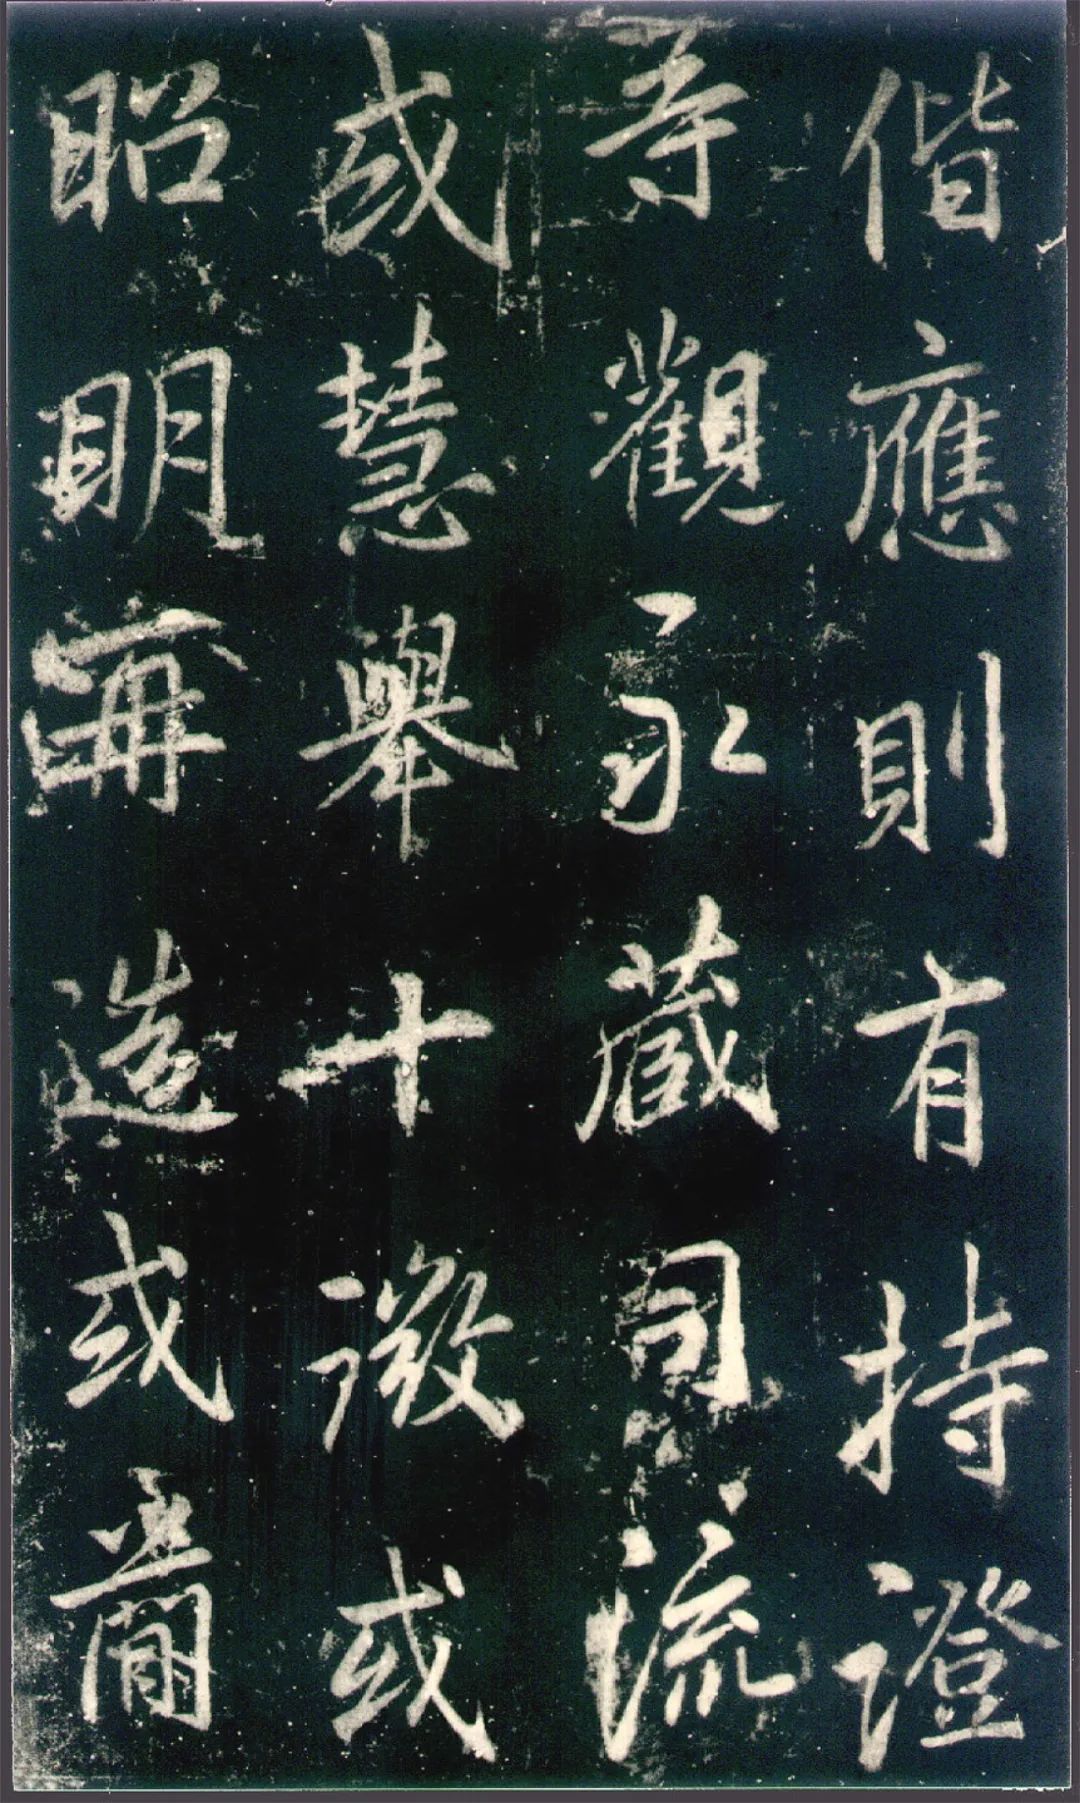 偕應則有持證
等觀永藏同流
或慧舉十徵或
昭明再造或